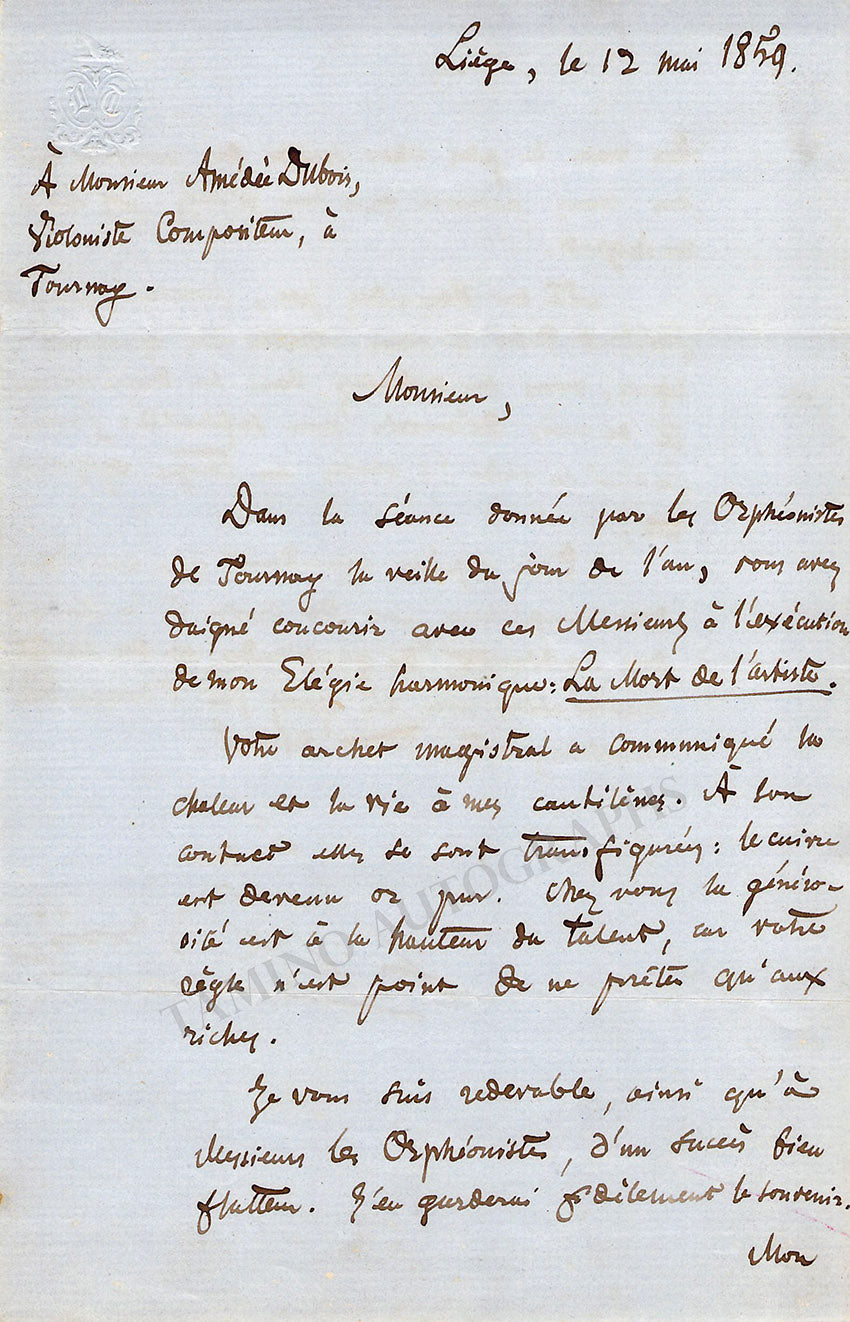 Liège, le 12 mai 1859.
À Monsieur Amédée Dubois,
Violoniste Compositeur, à
Tournay.
Monsieur,
Dans la séance donnée par les Orphéonistes
de Tournay la veille du jour de l'an, vous avez
daigné concourir avec ces Messieurs à l'exécution
de mon Elégie harmonique: La Mort de l'artiste.
Votre archet magistral a communiqué la
chaleur et la vie à mes cantilènes. À son
contact elles se sont transfigurées: le cuivre
est devenu or pur. Chez vous la généro-
sité est à la hauteur du talent, car votre
règle n'est point de ne prêter qu'aux
riches.
Je vous suis redevable, ainsi qu'à
Messieurs les Orphéonistes, d'un succès bien
flatteur. J'en garderai fidèlement le souvenir.
Mon
TAMINO AUTOGRAPHS